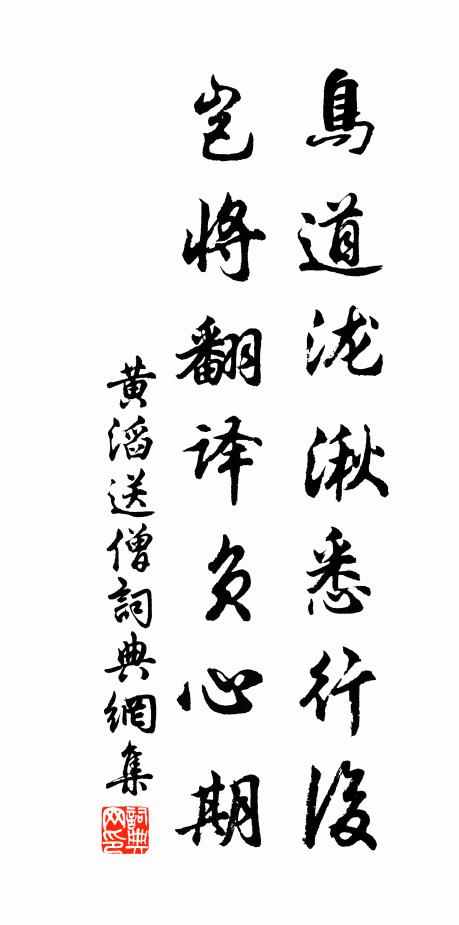 鳥道泷湫悉行後
岂将翻译负心期
黄滔送僧詞典網集
詞典网印